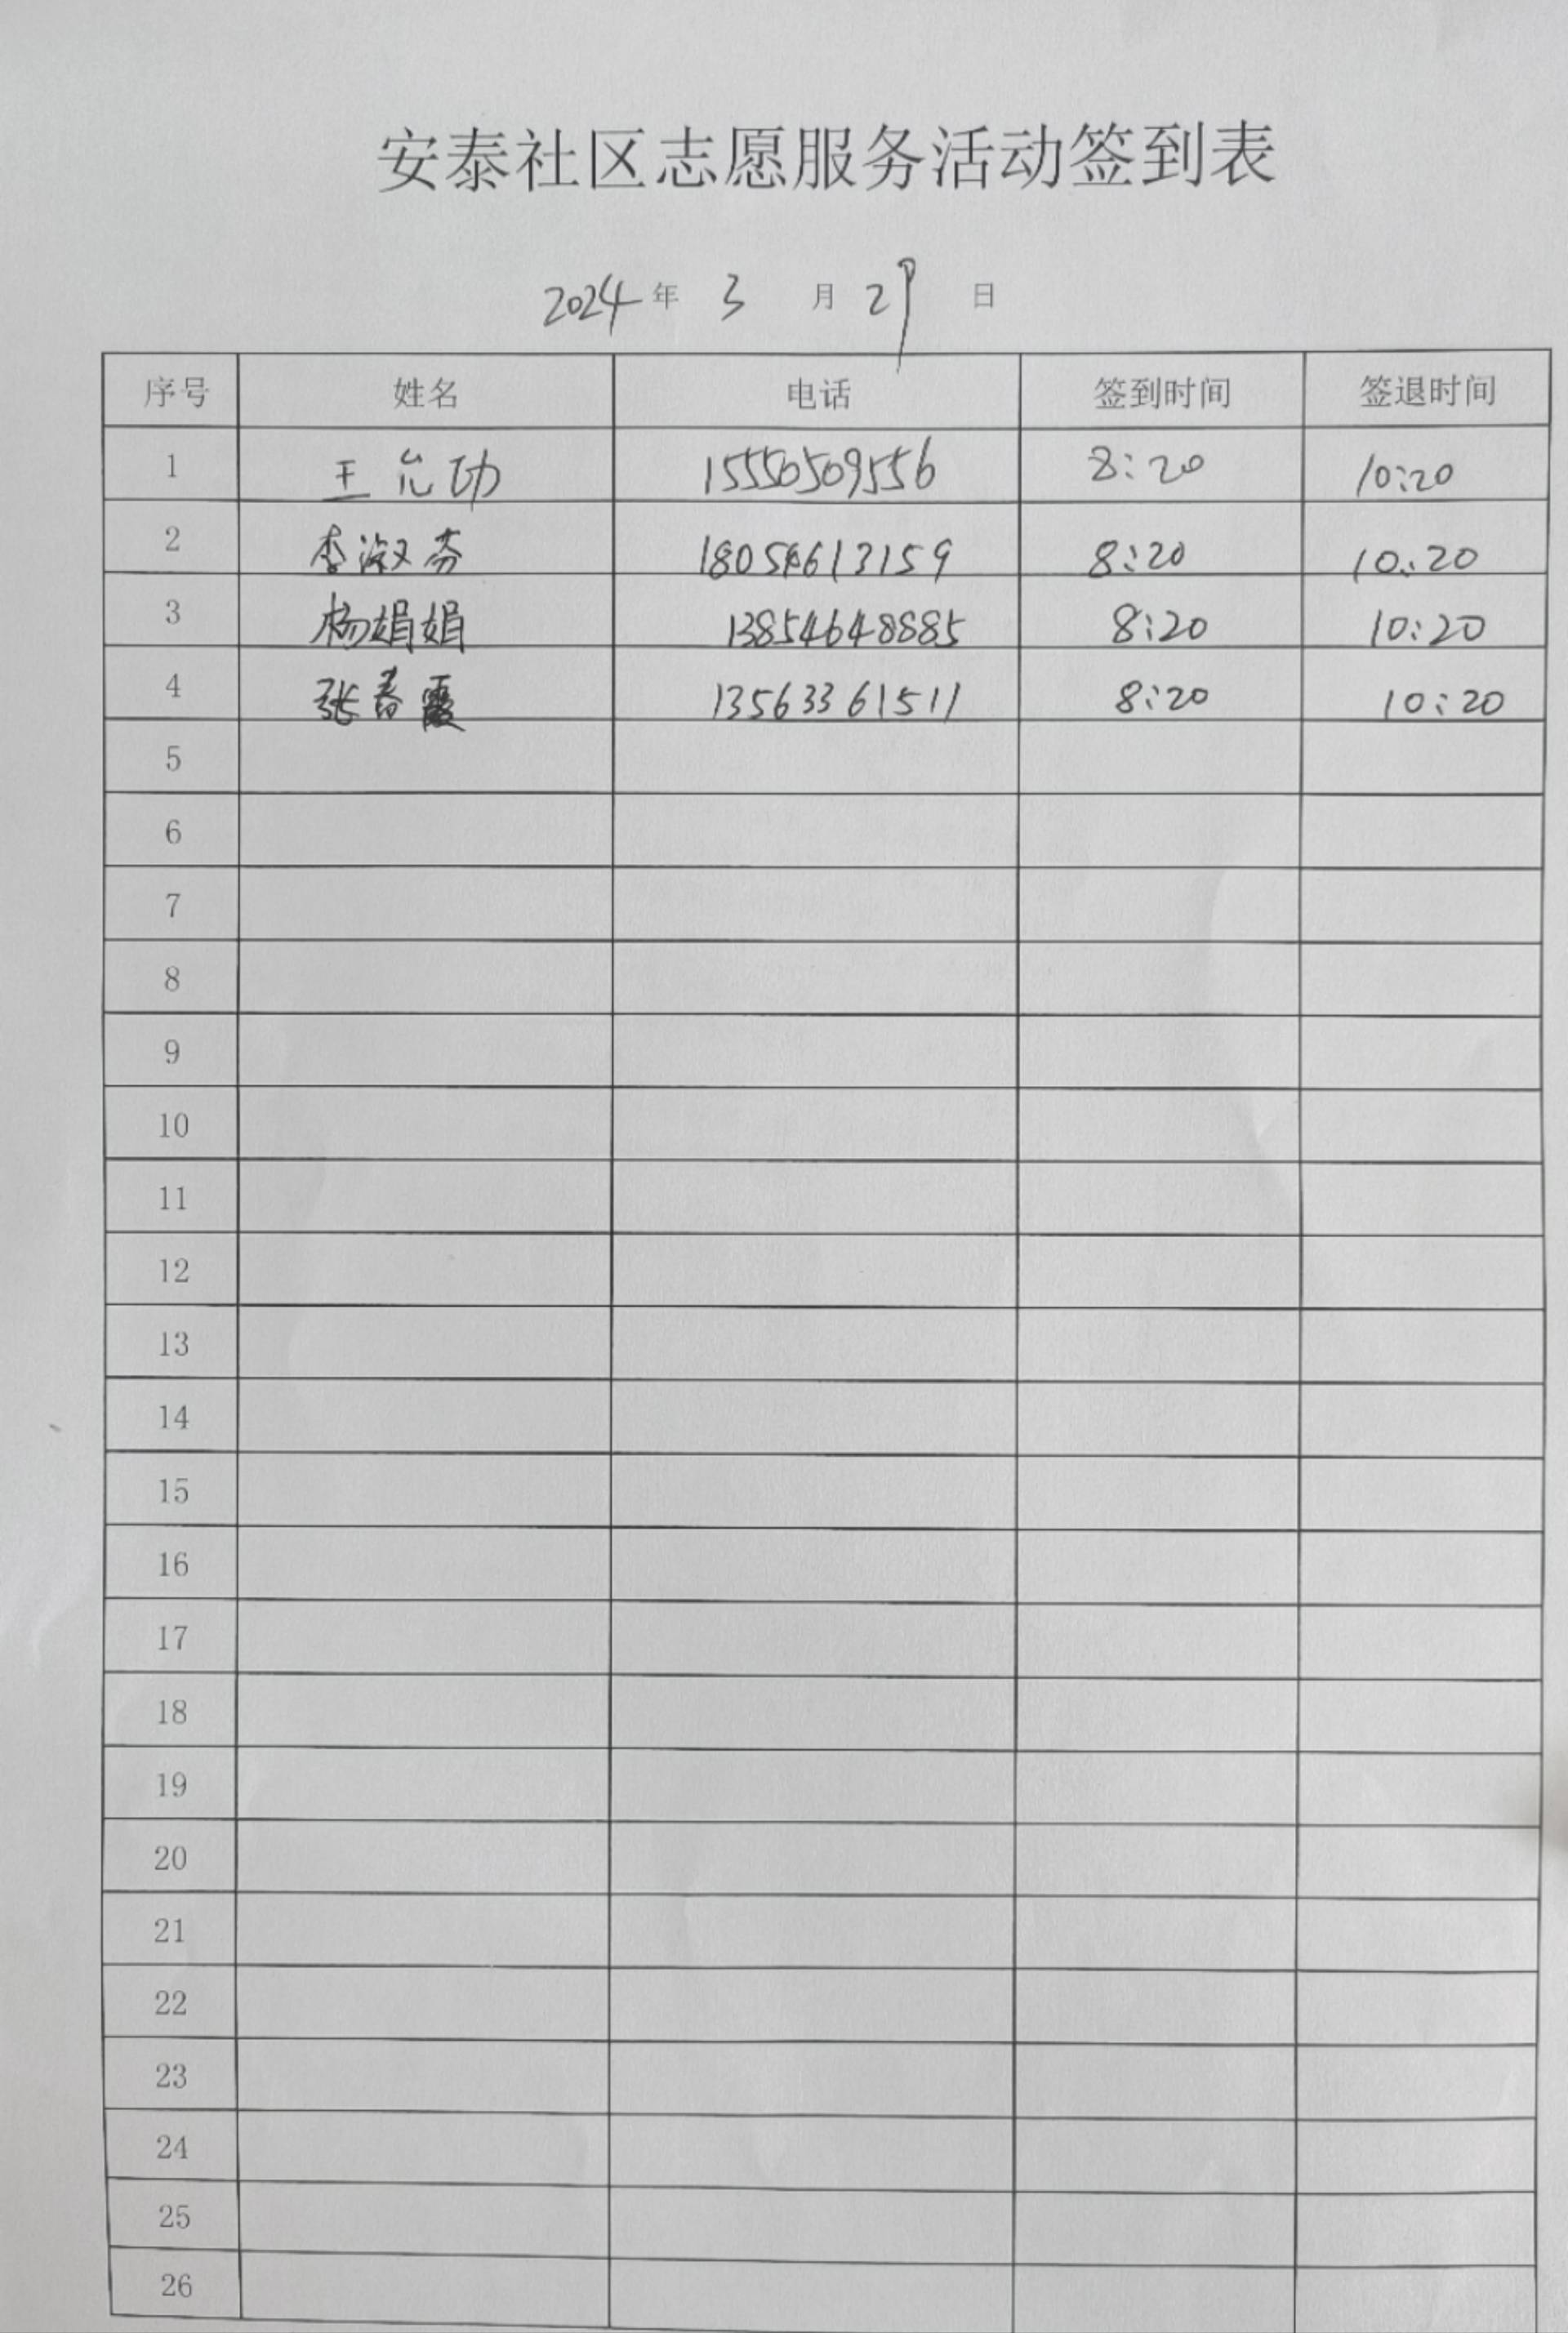 安泰社区志愿服务活动签到表
2024 年 3 月 29 日
序号 姓名 电话 签到时间 签退时间
1 王允功 15550509556 8:20 10:20
2 李淑芬 8:20 10:20
3 杨娟娟 13854648885 8:20 10:20
4 张春霞 13563361511 8:20 10:20
5
6
7
8
9
10
11
12
13
14
15
16
17
18
19
20
21
22
23
24
25
26